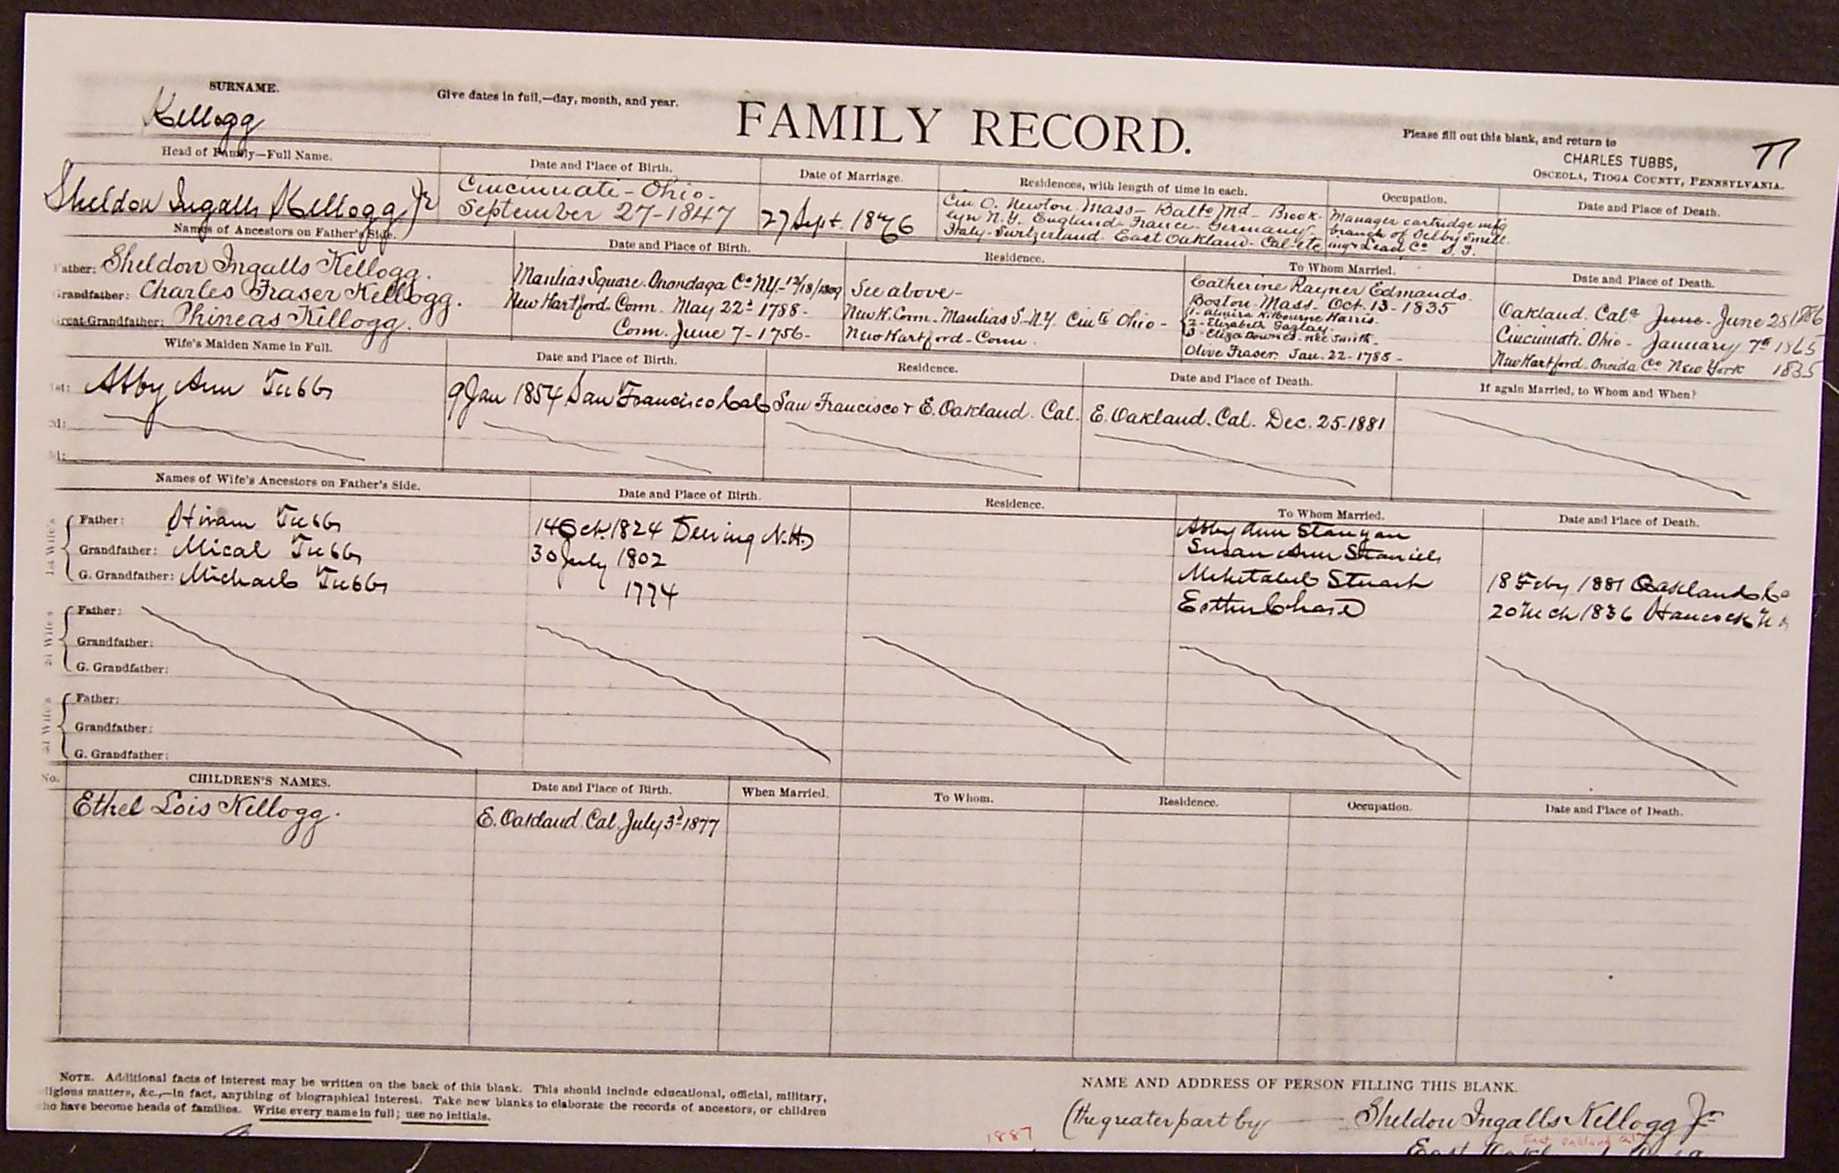 SURNAME.
Kellogg
Give dates in full,—day, month, and year.
FAMILY RECORD.
Please fill out this blank, and return to
CHARLES TUBBS,
OSCEOLA, TIOGA COUNTY, PENNSYLVANIA.
Head of Family—Full Name.
Date and Place of Birth.
Date of Marriage.
Residences, with length of time in each.
Occupation.
Date and Place of Death.
Sheldon Ingalls Kellogg Jr
Cincinnati - Ohio.
September 27-1847
27 Sept. 1876
Cin O. Newton Mass - Balto Md - Brook-
lyn N.Y. England - France - Germany
Italy - Switzerland - East Oakland - Cal etc
Manager cartridge mfg
branch of Selby Smelt-
ing & Lead Co S.F.
Names of Ancestors on Father's Side.
Date and Place of Birth.
Residence.
To Whom Married.
Date and Place of Death.
Father: Sheldon Ingalls Kellogg.
Manlius Square. Onondaga Co NY - 12/18/1809
See above -
Catherine Rayner Edmands.
Boston - Mass. Oct. 13 - 1835
Oakland. Cala June - June 28 1886
Grandfather: Charles Fraser Kellogg.
New Hartford. Conn. May 22d 1788 -
New H. Conn. Manlius S - N.Y. Cinti Ohio -
1 - Almira Kilbourne Harris.
2 - Elizabeth Gazlay.
3 - Eliza Downes - nee Smith -
Cincinnati. Ohio - January 7th 1865
Great-Grandfather: Phineas Kellogg.
Conn. June 7 - 1756 -
New Hartford - Conn.
Olive Fraser. Jan. 22 - 1785 -
New Hartford - Oneida Co New York 1835
Wife's Maiden Name in Full.
Date and Place of Birth.
Residence.
Date and Place of Death.
If again Married, to Whom and When?
1st: Abby Ann Tubbs
9 Jan 1854 San Francisco Cal
San Francisco & E. Oakland. Cal.
E. Oakland. Cal. Dec. 25-1881
Names of Wife's Ancestors on Father's Side.
Date and Place of Birth.
Residence.
To Whom Married.
Date and Place of Death.
1st Wife's
Father: Hiram Tubbs
14 Oct. 1824 Deering N.H.
Abby Ann Stanyan
Susan Ann Staniels
Grandfather: Mical Tubbs
30 July 1802
Mehetabel Stuart
18 Feby 1881 Oakland Ca
G. Grandfather: Michael Tubbs
1774
Esther Chase
20 Mch 1836 Hancock N H
2d Wife's
Father:
Grandfather:
G. Grandfather:
3d Wife's
Father:
Grandfather:
G. Grandfather:
No.
CHILDREN'S NAMES.
Date and Place of Birth.
When Married.
To Whom.
Residence.
Occupation.
Date and Place of Death.
Ethel Lois Kellogg.
E. Oakland. Cal. July 3d 1877
NOTE. Additional facts of interest may be written on the back of this blank. This should include educational, official, military,
ligious matters, &c.,—in fact, anything of biographical interest. Take new blanks to elaborate the records of ancestors, or children
ho have become heads of families. Write every name in full; use no initials.
NAME AND ADDRESS OF PERSON FILLING THIS BLANK.
(the greater part by Sheldon Ingalls Kellogg Jr
1887
East Oakland Cal